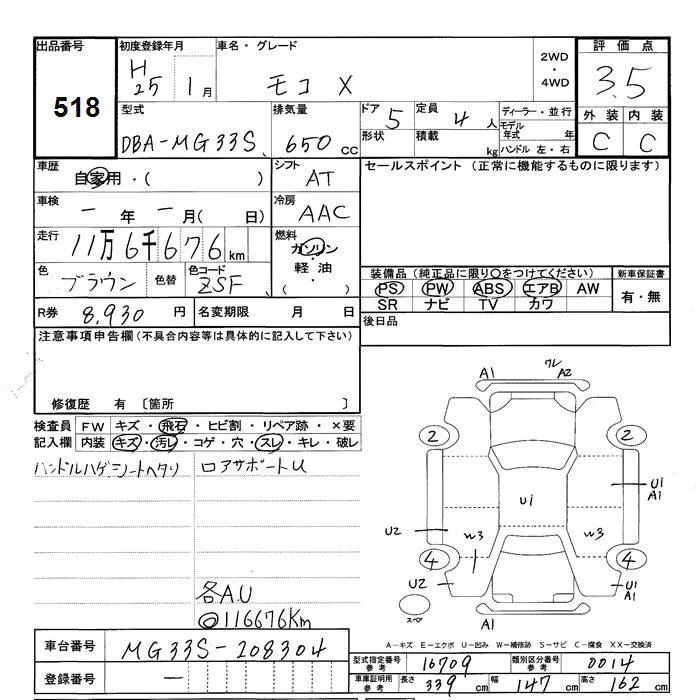 出品番号 初度登録年月 車名・グレード 2WD・4WD 評価点
518 H25 1月 モコ X 3.5
型式 排気量 ドア 5 定員 4人 ディーラー・並行 外装 内装
DBA-MG33S 650cc 形状 積載 kg モデル年式 年 ハンドル 左・右 C C
車歴 自家用・( ) シフト AT セールスポイント (正常に機能するものに限ります)
車検 ー年 ー月( 日) 冷房 AAC
走行 11万6千676km 燃料 ガソリン 軽油 ( )
色 ブラウン 色替 色コード ZSF 装備品 (純正品に限り○をつけてください) 新車保証書
PS PW ABS エアB AW 有・無
SR ナビ TV カワ
R券 8,930円 名変期限 月 日 後日品
注意事項申告欄 (不具合内容等は具体的に記入して下さい)
修復歴 有 〔箇所 〕
検査員 FW キズ・飛石・ヒビ割・リペア跡・×要
記入欄 内装 キズ・汚レ・コゲ・穴・スレ・キレ・破レ
ハンドルハゲ、シートヘタリ ロアサポートU
各A.U
◎116676Km
A1 ワレ A2
2 2
U1 U1 A1
U2 W3 W3
4 4
U2 U1 A1
スペア A1
A-キズ E-エクボ U-凹み W-補修跡 S-サビ C-腐食 XX-交換済
車台番号 MG33S-208304
登録番号 ー
型式指定番号 参考 16709 類別区分番号 参考 0014
車庫証明用 参考 長さ 339cm 幅 147cm 高さ 162cm